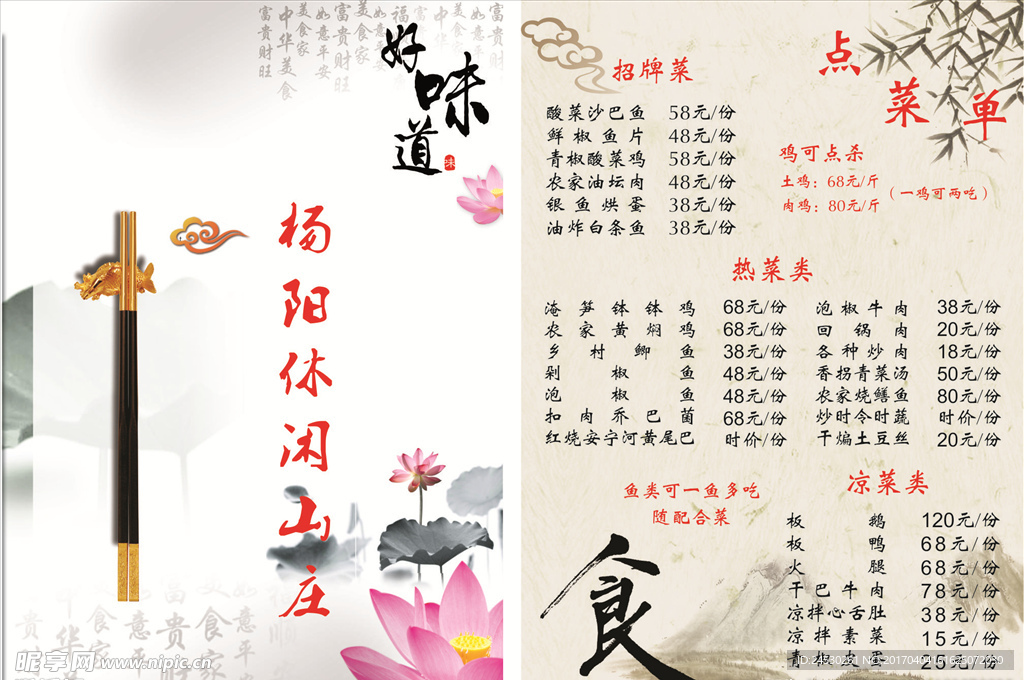 富贵财旺
中华美食
美食家
如意平安
富贵财旺
好味道
味
杨阳休闲山庄
昵享网 www.nipic.cn
点菜单
招牌菜
酸菜沙巴鱼 58元/份
鲜椒鱼片 48元/份
青椒酸菜鸡 58元/份
农家油坛肉 48元/份
银鱼烘蛋 38元/份
油炸白条鱼 38元/份
鸡可点杀
土鸡：68元/斤
肉鸡：80元/斤
（一鸡可两吃）
热菜类
淹笋钵钵鸡 68元/份
农家黄焖鸡 68元/份
乡村鲫鱼 38元/份
剁椒鱼 48元/份
泡椒鱼 48元/份
扣肉乔巴菌 68元/份
红烧安宁河黄尾巴 时价/份
泡椒牛肉 38元/份
回锅肉 20元/份
各种炒肉 18元/份
香拐青菜汤 50元/份
农家烧鳝鱼 80元/份
炒时令时蔬 时价/份
干煸土豆丝 20元/份
鱼类可一鱼多吃
随配合菜
食
凉菜类
板鹅 120元/份
板鸭 68元/份
火腿 68元/份
干巴牛肉 78元/份
凉拌心舌肚 38元/份
凉拌素菜 15元/份
青椒皮蛋 25元/份